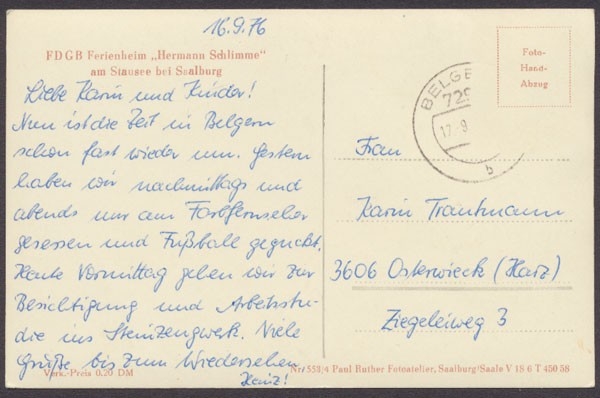 16.9.76
FDGB Ferienheim „Hermann Schlimme"
am Stausee bei Saalburg
Liebe Karin und Kinder!
Nun ist die Zeit in Belgern
schon fast wieder um. Gestern
haben wir nachmittags und
abends nur am Farbfernseher
gesessen und Fußball geguckt.
Heute Vormittag gehen wir zur
Besichtigung und Arbeitsstu-
die ins Steinzeugwerk. Viele
Grüße bis zum Wiedersehen
Heinz!
Verk.-Preis 0.20 DM
Foto-
Hand-
Abzug
BELGE
729
17.9.
b
Frau
Karin Trautmann
3606 Osterwieck (Harz)
Ziegeleiweg 3
Nr. 553/4 Paul Ruther Fotoatelier, Saalburg/Saale V 18 6 T 450 58